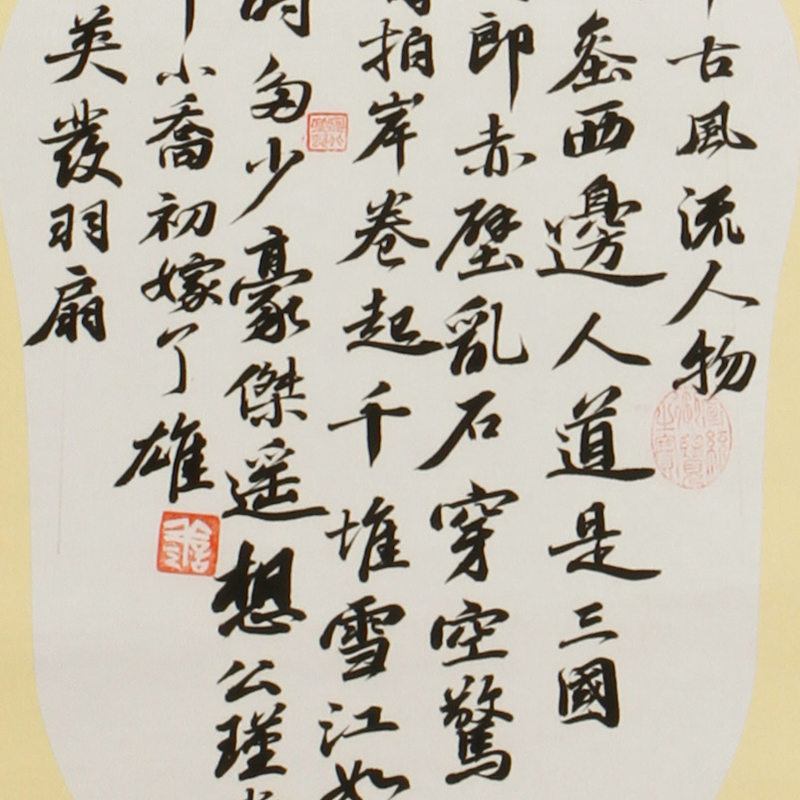 古風流人物
垒西邊人道是三國
郎赤壁亂石穿空驚
拍岸卷起千堆雪江如
多少豪傑遥想公瑾
小喬初嫁了雄
英發羽扇